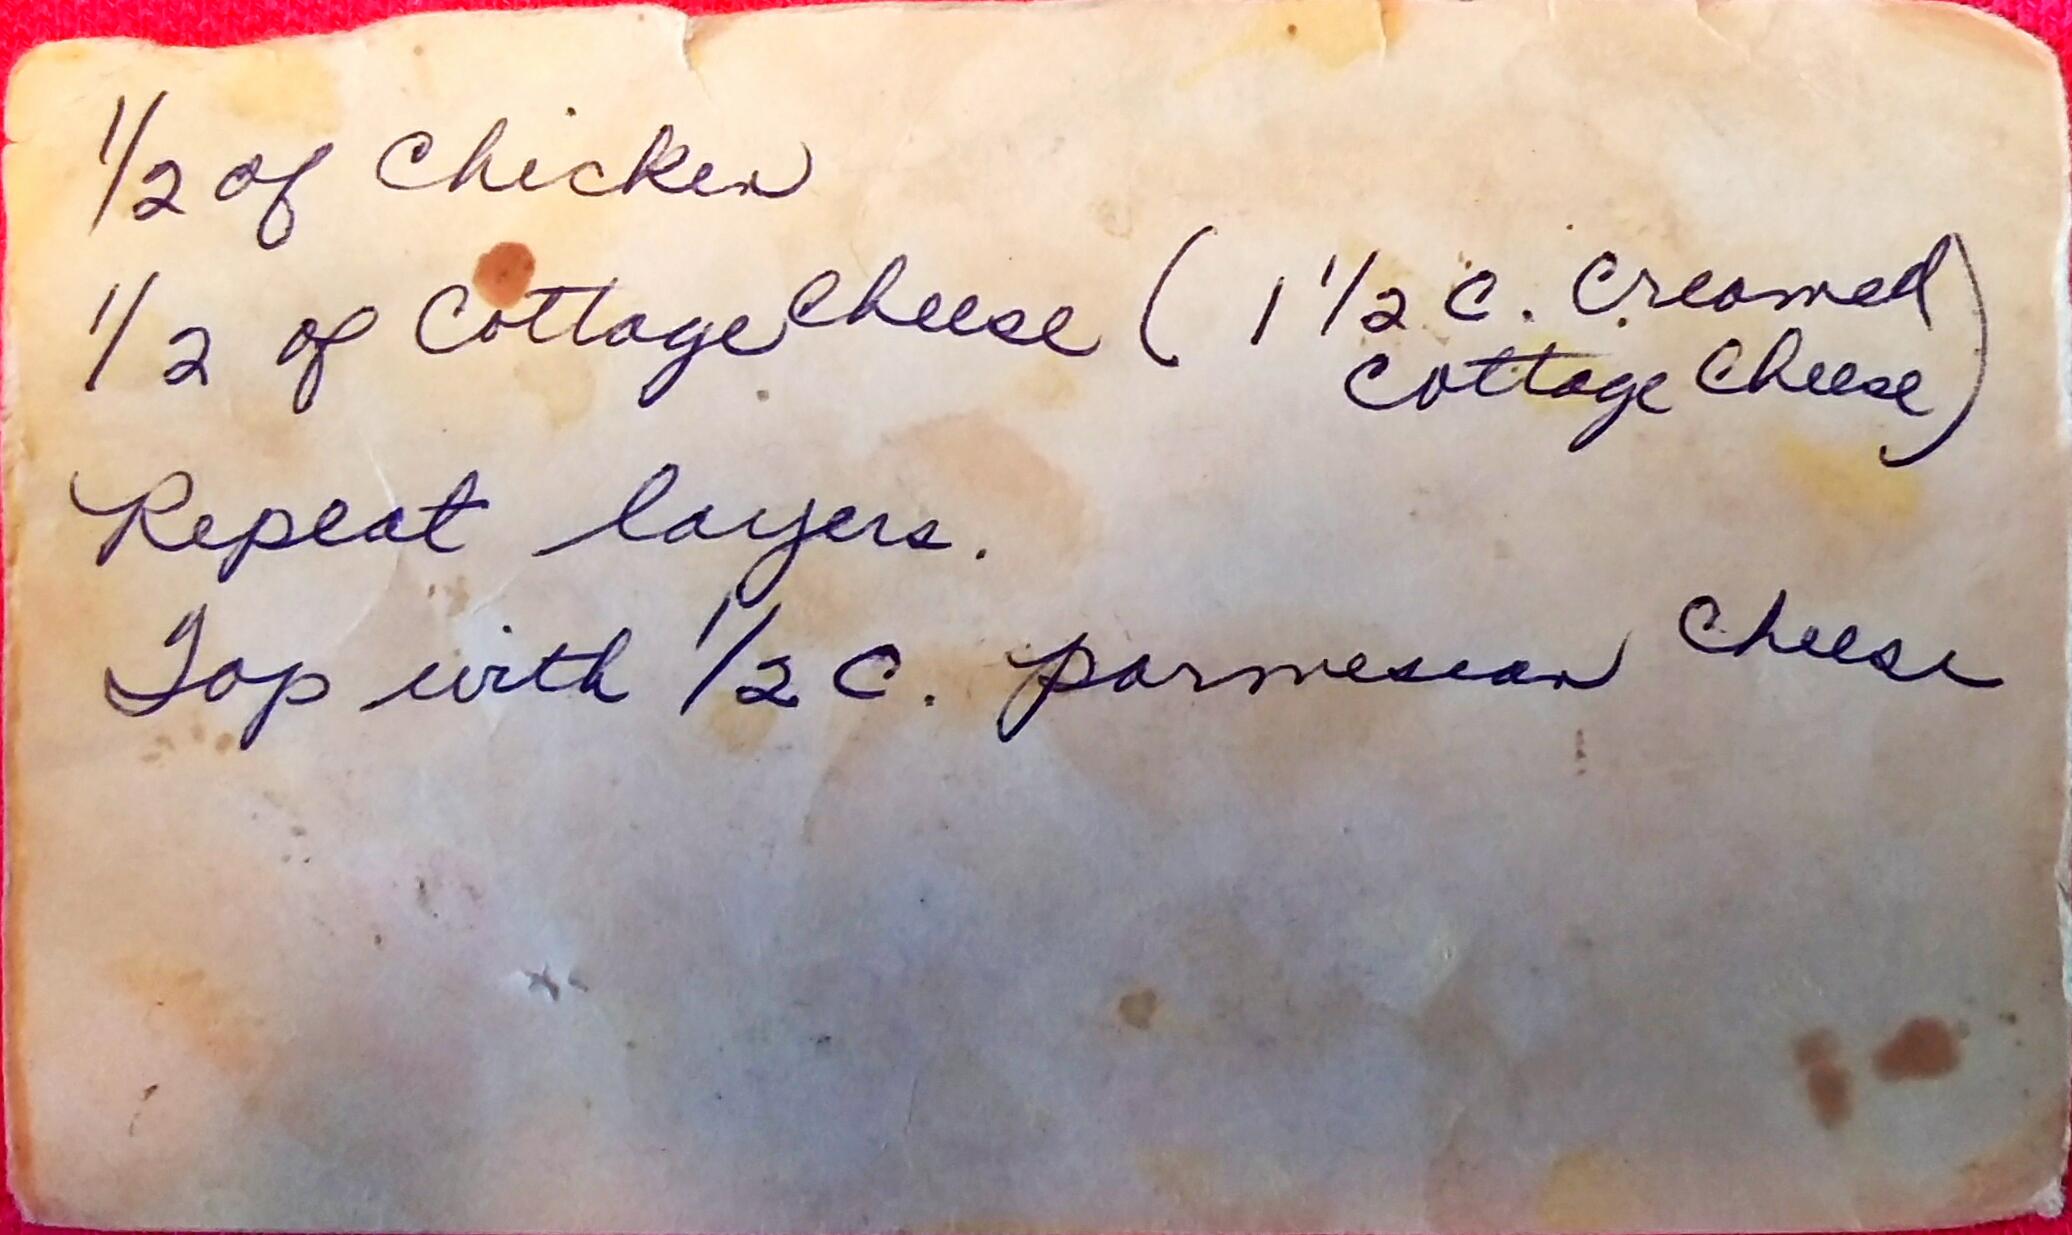 1/2 of Chicken
1/2 of Cottage Cheese ( 1 1/2 C. Creamed
Cottage Cheese)
Repeat layers.
Top with 1/2 C. parmesean Cheese